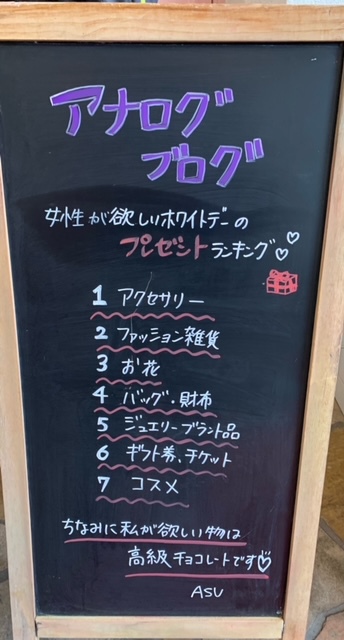 アナログ
ブログ
女性が欲しいホワイトデーの
プレゼントランキング♡♡
1 アクセサリー
2 ファッション雑貨
3 お花
4 バッグ・財布
5 ジュエリーブランド品
6 ギフト券、チケット
7 コスメ
ちなみに私が欲しい物は
高級チョコレートです♡
ASU